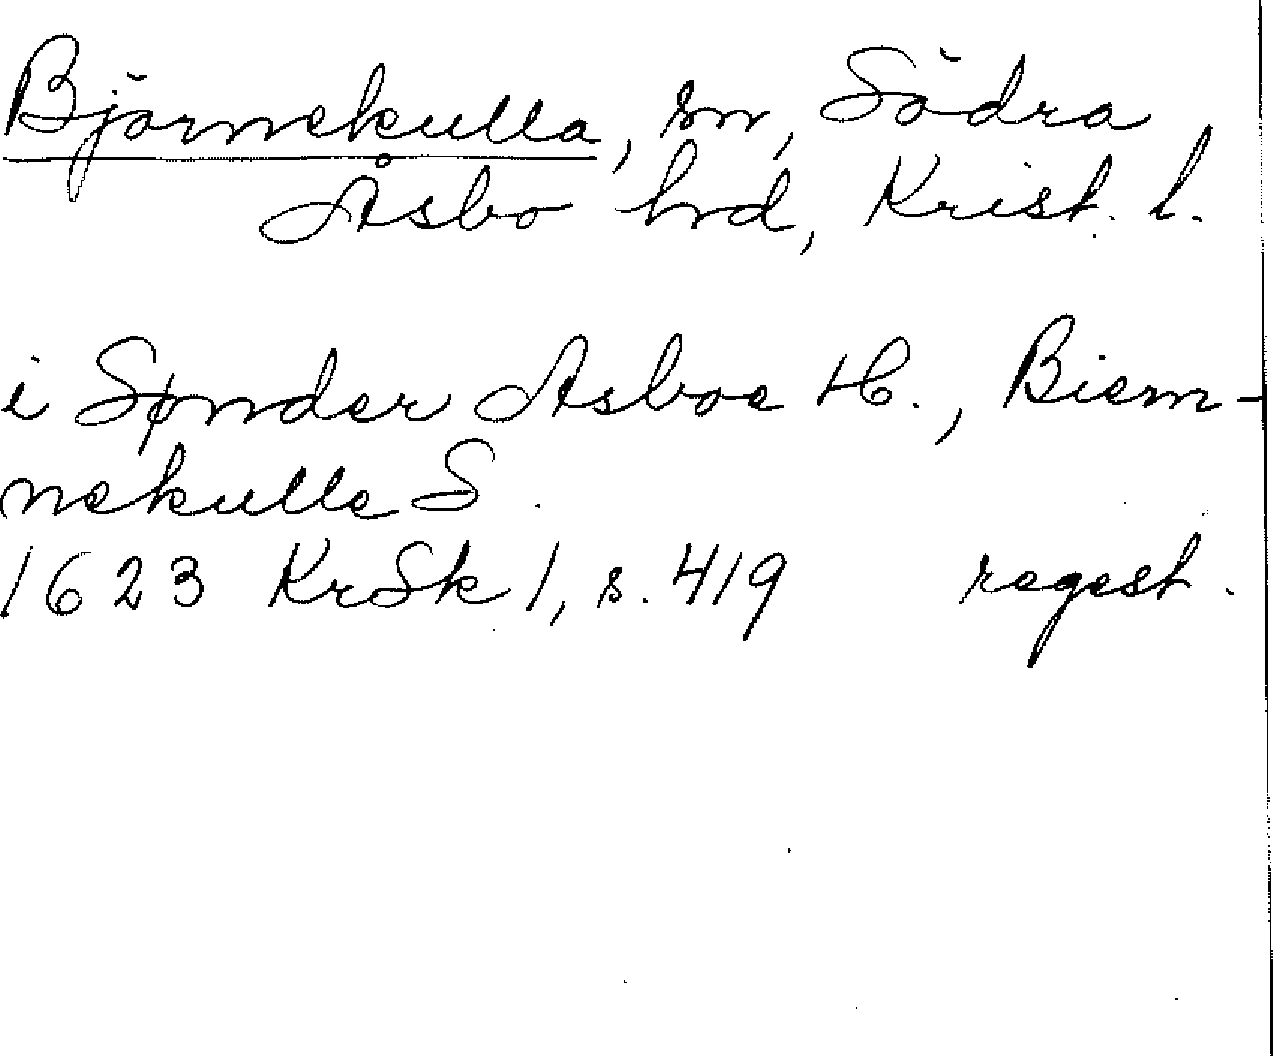 Björnekulla, sn, Södra
Åsbo hrd, Krist. l.
i Sønder Asboe H., Biern-
nekulle S.
1623 KrSk 1, s. 419 regest.